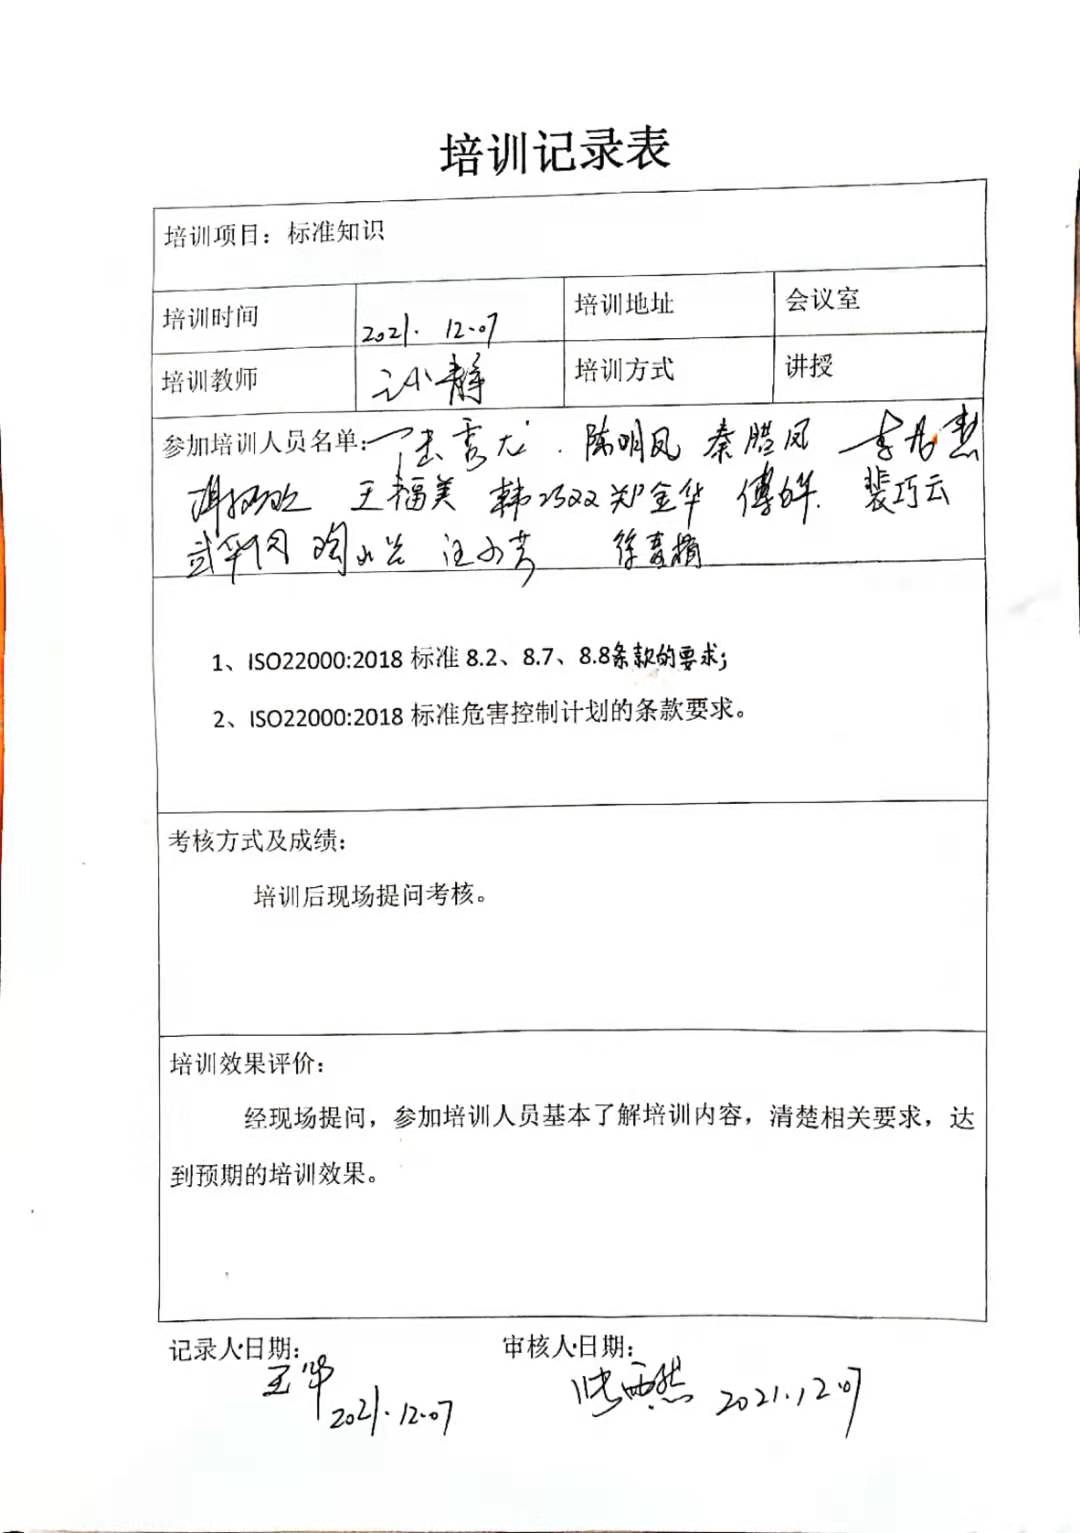 培训记录表
培训项目：标准知识
培训时间 2021.12.07 培训地址 会议室
培训教师 静 培训方式 讲授
参加培训人员名单: 陈明凤 秦腊凤
王福美 韩 郑金华 傅 裴巧云
徐
1、ISO22000:2018 标准 8.2、8.7、8.8条款的要求;
2、ISO22000:2018 标准危害控制计划的条款要求。
考核方式及成绩：
培训后现场提问考核。
培训效果评价：
经现场提问，参加培训人员基本了解培训内容，清楚相关要求，达
到预期的培训效果。
记录人\日期： 审核人\日期：
王华
2021.12.07 2021.12.07